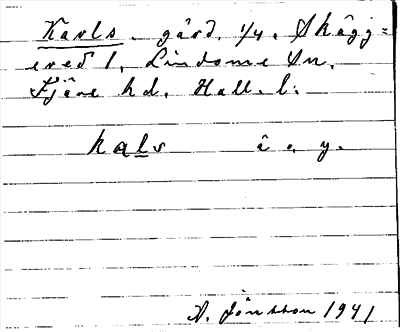 Karls. gård, 1/4, Skägg=
ered 1, Lindome Sn,
Fjäre hd, Hall. l.
kals î. y.
A. Jönsson 1941